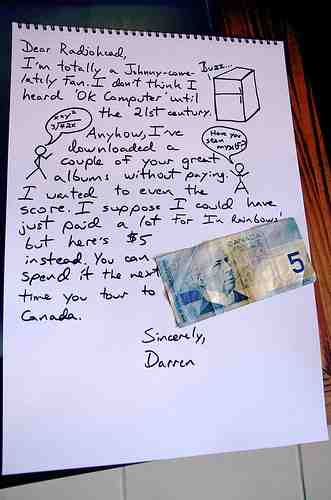 Dear Radiohead,
I'm totally a Johnny-come-
lately fan. I don't think I
heard 'OK Computer' until
the 21st century.
Buzz...
Anyhow, I've
downloaded a
couple of your great
albums without paying.
I wanted to even the
score. I suppose I could have
just paid a lot for In Rainbows!
but here's $5
instead. You can
spend it the next
time you tour to
Canada.
Have you
seen
myself?
CANADA
5
Sincerely,
Darren